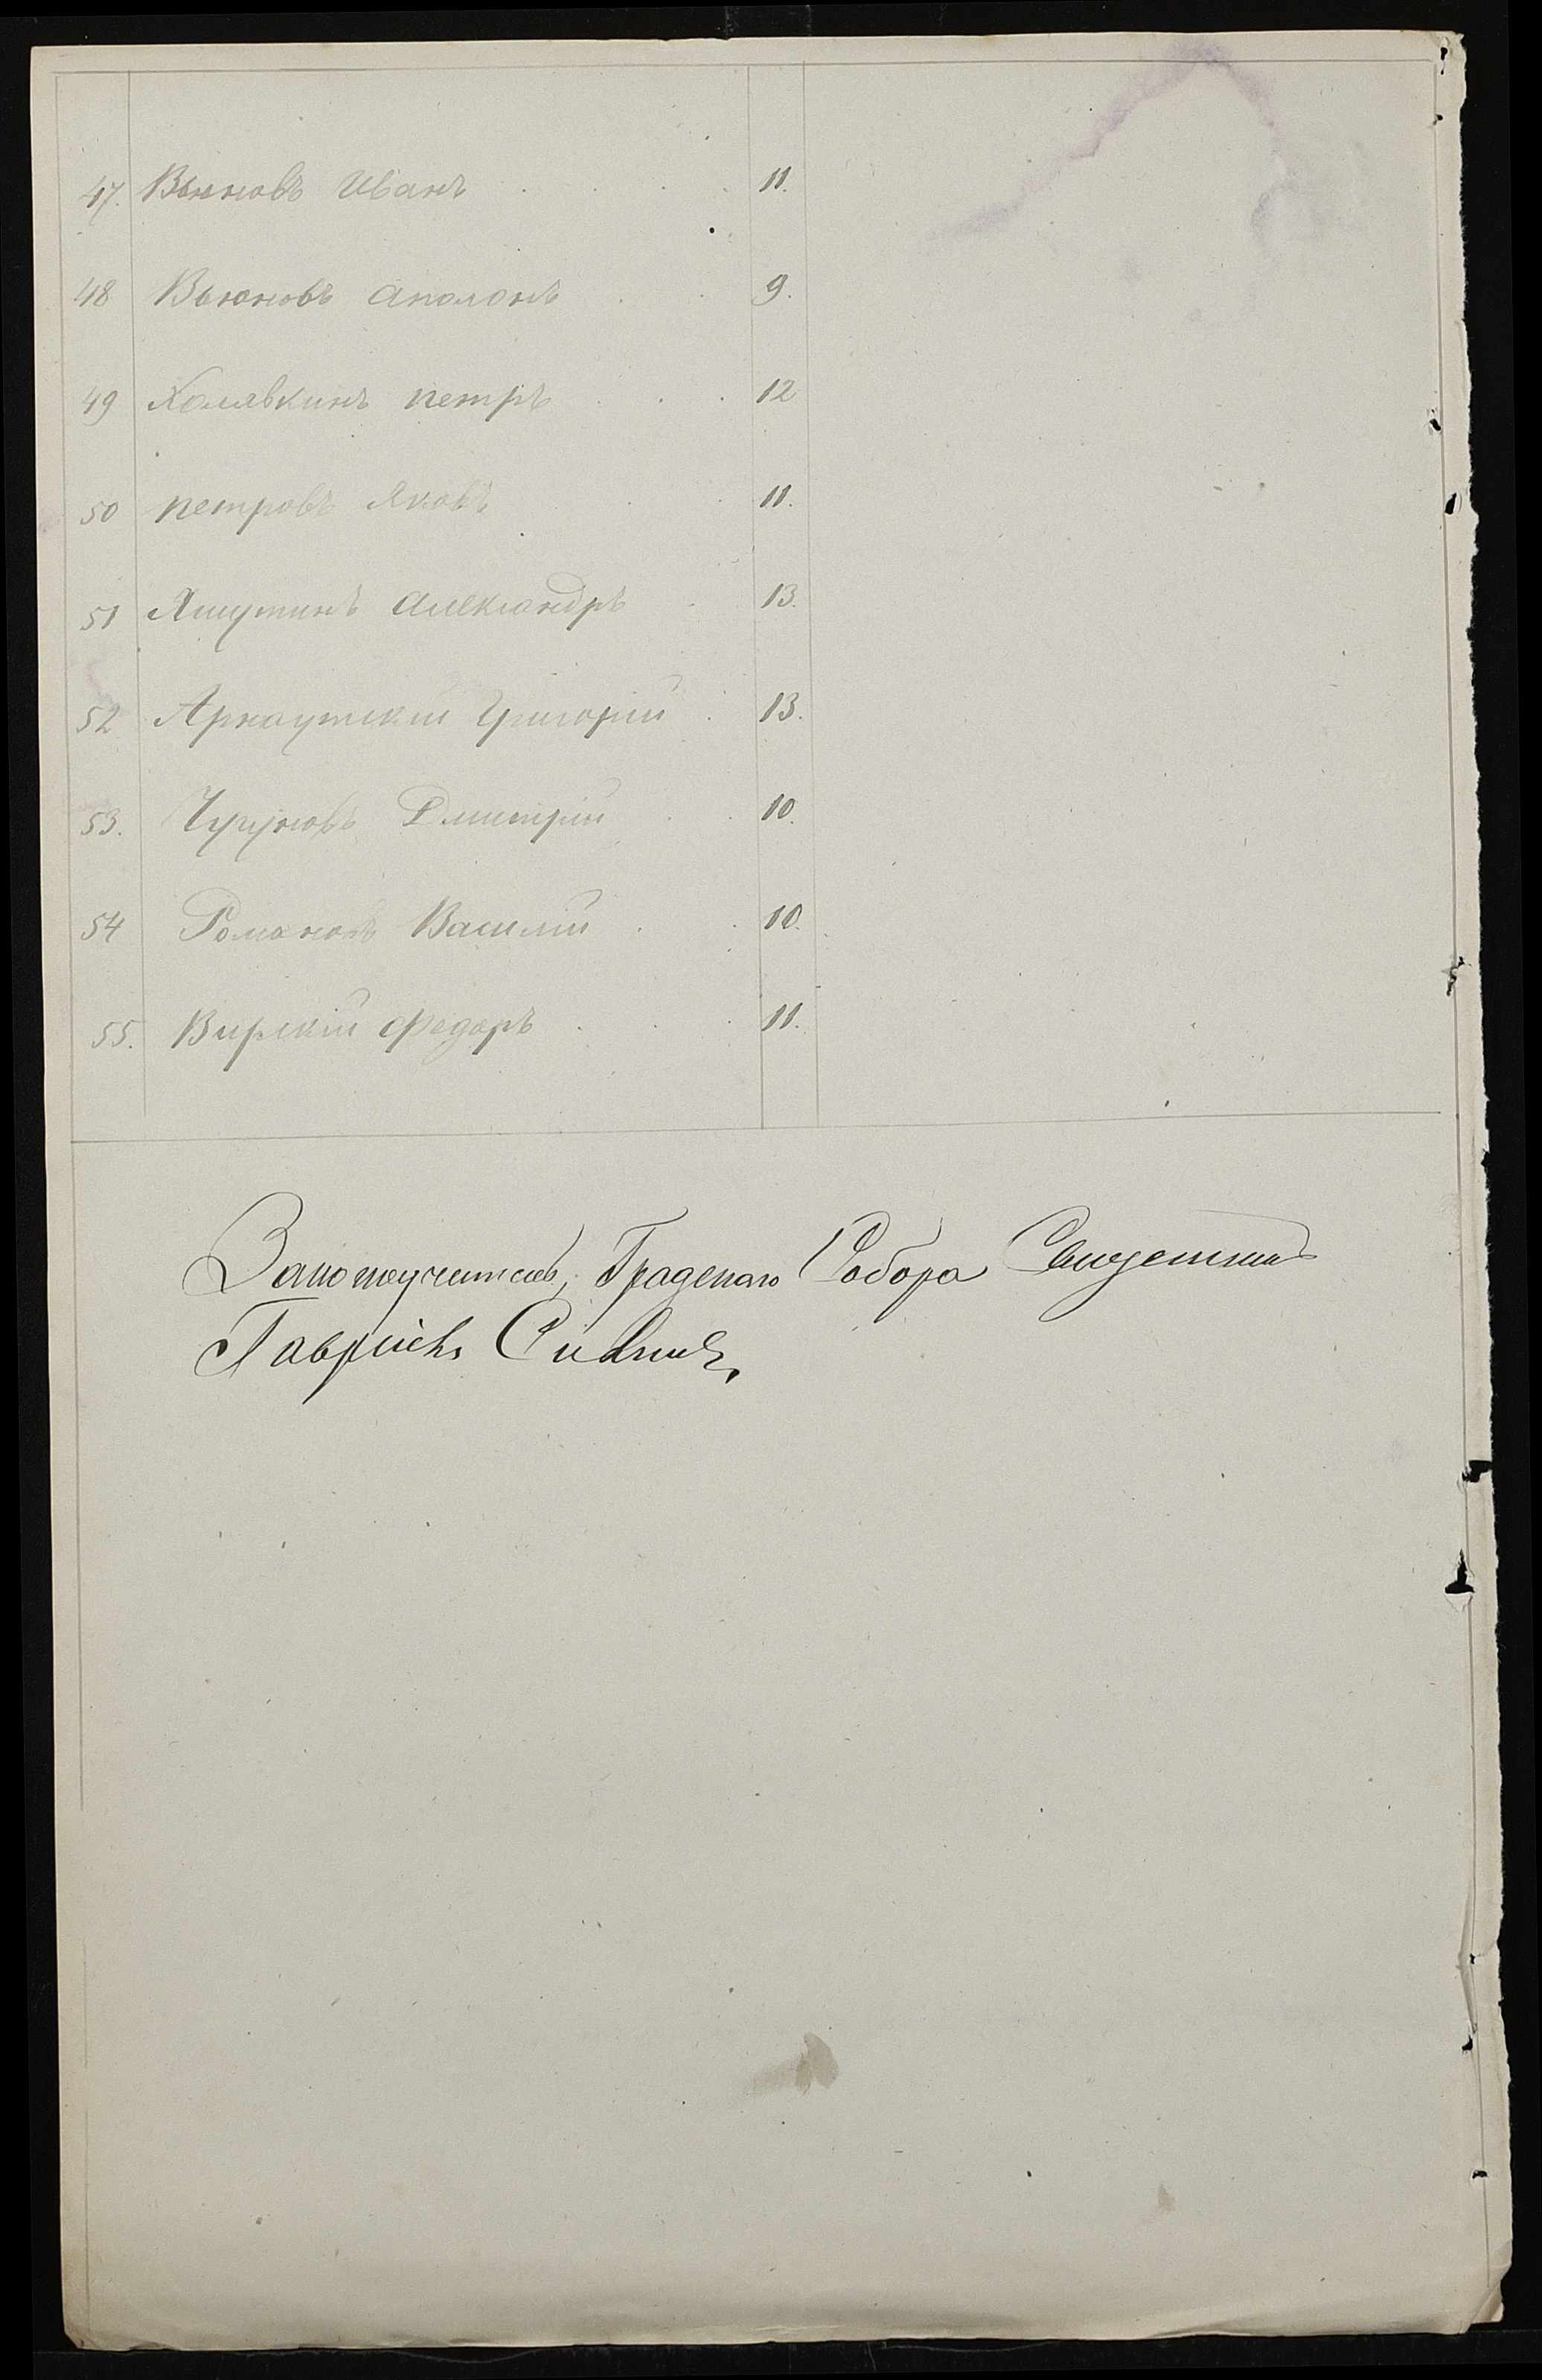 47. Вьюновъ Иванъ 11.
48 Вьюновъ Аполонъ 9.
49 Халявкинъ Петръ 12
50 Петровъ Яковъ 11.
51 Яшутинъ Александръ 13.
52 Арнаутскій Григорій 13.
53. Чугуновъ Дмитрій 10.
54 Романовъ Василій 10.
55. Вирскій Федоръ 11.
Законоучитель, Градскаго Собора Священникъ
Гавріилъ